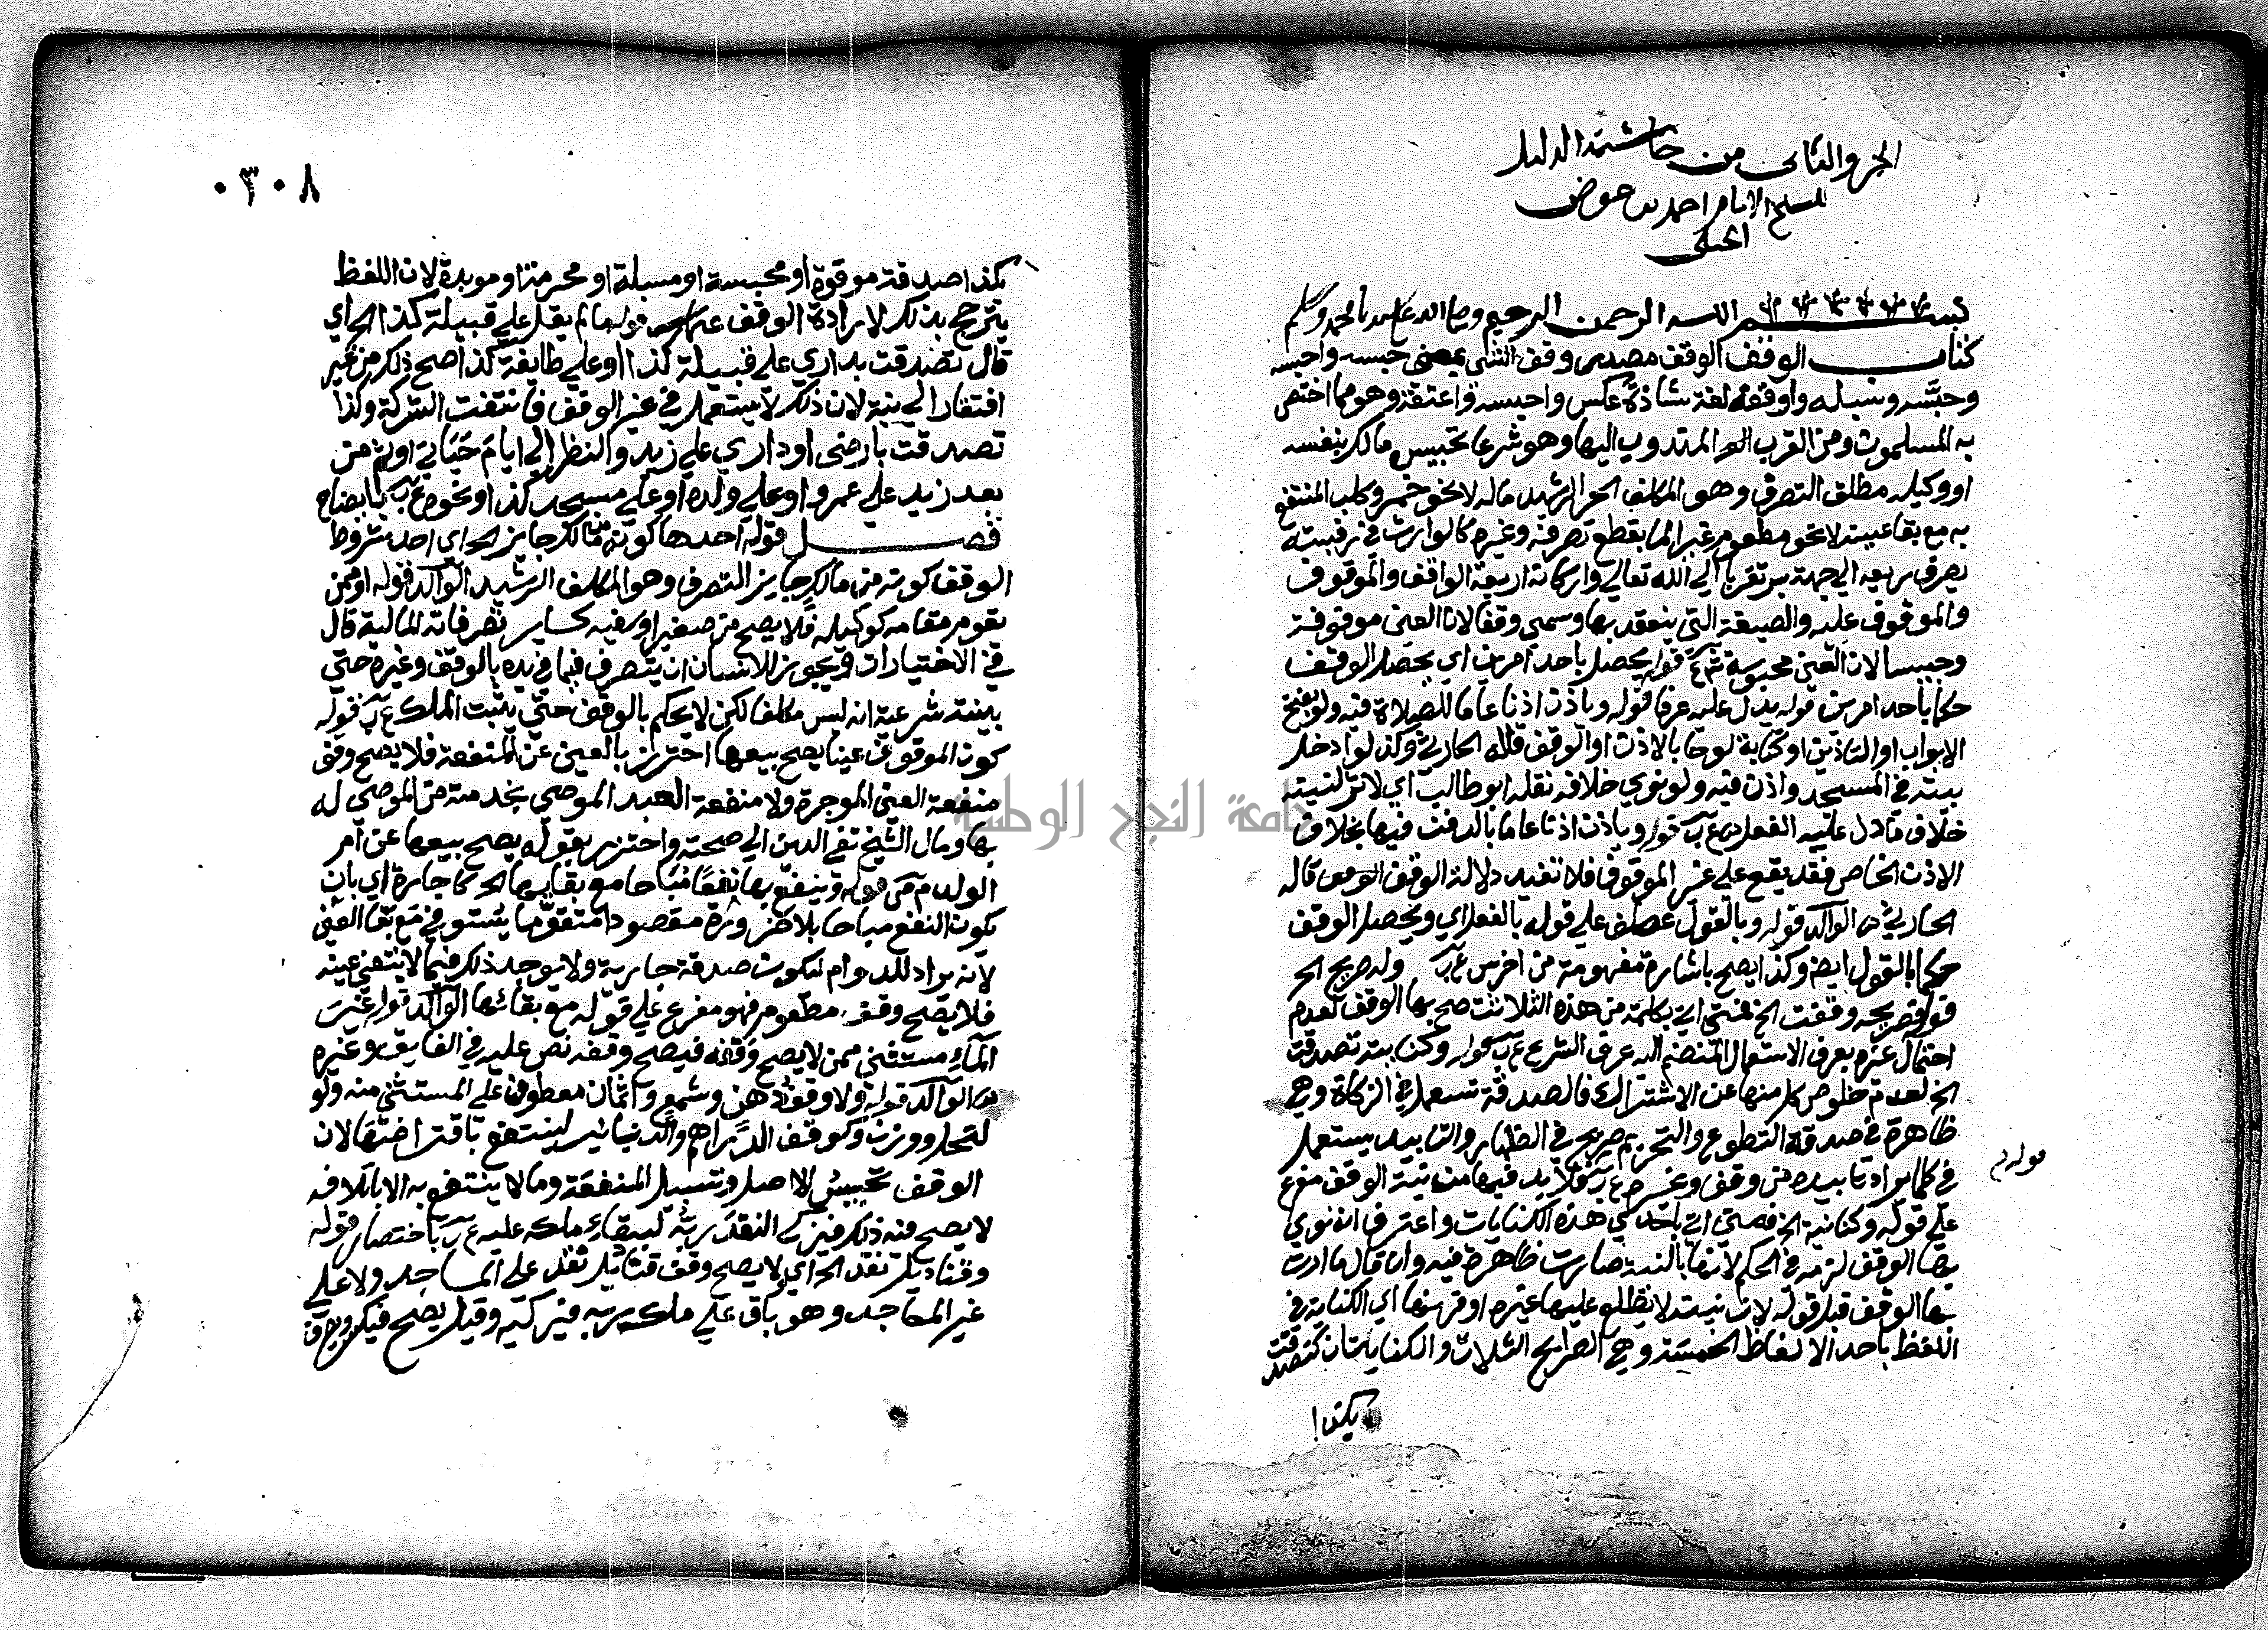 الجزو الثاني من حاشية الدليل
للشيخ الامام احمد بن عوض
الحنبلي
بسم الله الرحمن الرحيم وصلى الله على سيدنا محمد وسلم
كتاب الوقف الوقف مصدر وقف الشي بمعنى حبسه واحبسه
وحبَّسه وسبله واوقفه لغة شاذة عكس واحبسه واعتقه وهو مما اختص
به المسلمون ومن القرب المندوب اليها وهو شرعا تحبيس مالك بنفسه
او وكيله مطلق التصرف وهو المكلف الحر الرشيد ماله لا نحو خمر وكلب المنتفع
به مع بقا عينه لا نحو مطعوم غير الما بقطع تصرفه وغيره كالوارث في رقبته
يصرف ريعه الى جهة بر تقربا الي الله تعالي واركانه اربعة الواقف والموقوف
والموقوف عليه والصيغة التي ينعقد بها وسمي وقفا لان العين موقوفة
وحبيسا لان العين محبوسة قوله يحصل باحد امرين اي يحصل الوقف
حكما باحد امرين قوله يدل عليه عرفا قوله وياذن اذنا عاما للصلاة فيه ولو بفتح
الابواب او التاذين او كتابة لوحا بالاذن او الوقف قاله الحارثي وكذا لو ادخل
بيته في المسجد واذن فيه ولو نوي خلافه نقله ابو طالب اي لا اثر لنيته
خلاف ما دل عليه الفعل قوله وياذن اذنا عاما بالدفن فيها بخلاف
الاذن الخاص فقد يقع على غير الموقوف فلا تفيد دلالة الوقف قاله
الحارثي م الوالد قوله وبالقول عطف على قوله بالفعل اي ويحصل الوقف
حكما بالقول ايضا وكذا يصح باشارة مفهومة من اخرس وله صريح الخ
قوله فصريحه وقفت الخ فمتى اتي بكلمة من هذه الثلاث صح بها الوقف لعدم
احتمال غيره بعرف الاستعمال المنضم اليه عرف الشرع قوله وكنايته تصدقت
الخ لعدم خلوص كل منها عن الاشتراك فالصدقة تستعمل في الزكاة وهي
ظاهرة في صدقة التطوع والتحريم صريح في الظهار والتابيد يستعمل
قوله
في كلما يراد تابيده من وقف وغيره فلا بد فيها من نية الوقف مفرع
على قوله وكنايته الخ فمتى اتي باحدي هذه الكنايات واعترف انه نوي
بها الوقف لزمه في الحكم لانها بالنية صارت ظاهرة فيه وان قال ما اردت
بها الوقف قبل قوله لان نيته لا يطلع عليها غيره او قرنها اي الكناية في
اللفظ باحد الالفاظ الخمسة وهي الصرايح الثلاث والكنايتان كتصدقت
بكذا
٠٣٠٨
بكذا صدقة موقوفة او محبسة او مسبلة او محرمة او موبدة لان اللفظ
يترجح بذلك لارادة الوقف قوله على قبيلة كذا الخ اي
قال تصدقت بداري على قبيلة كذا او على طايفة كذا صح ذلك من غير
افتقار الي نية لان ذلك لا يستعمل في غير الوقف فانتفت الشركة وكذا
تصدقت بارضي او داري على زيد والنظر الي ايام حياتي او ثم من
بعد زيد على عمرو او على ولده او على مسجد كذا او نحوه بايضاح
فصل قوله احدها كونه من مالك جايز الخ اي احد شروط
الوقف كونه من مالك جايز التصرف وهو المكلف الرشيد الوالد قوله او ممن
يقوم مقامه كوكيله فلا يصح من صغير او سفيه كساير تصرفاته المالية قال
في الاختيارات ويجوز للانسان ان يتصرف فيما في يده بالوقف وغيره حتى
بينة شرعية انه ليس مكلفا لكن لا يحكم بالوقف حتي يثبت الملك قوله
كون الموقوف عينا يصح بيعها احترز بالعين عن المنفعة فلا يصح وقف
منفعة العين الموجرة ولا منفعة العبد الموصي بخدمته من الموصي له
بها ومال الشيخ تقي الدين الي صحته واحترز بقوله يصح بيعها عن ام
الولد قوله وينتفع بها نفعا مباحا مع بقايها الخ كاجارة اي بان
يكون النفع مباحا بلا ضرورة مقصودا متقوما يستوفي مع بقا العين
لانه يراد للدوام ليكون صدقة جارية ولا يوجد ذلك فيما لا تبقي عينه
فلا يصح وقف مطعوم فهو مفرع على قوله مع بقائها الوالد قوله غير
الماء مستثني ممن لا يصح وقفه فيصح وقفه نص عليه في الفايق وغيره
م الوالد قوله ولا وقف دهن وشمع واثمان معطوف على المستثنى منه ولو
لتحل ووزن وكوقف الدراهم والدنانير لينتفع باقتراضها لان
الوقف تحبيس الاصل وتسبيل المنفعة وما لا ينتفع به الا باتلافه
لا يصح فيه ذلك فيزكي النقد ربه لبقاء ملكه عليه باختصار قوله
وقناديل نقد الخ اي لا يصح وقف قناديل نقد على المساجد ولا على
غير المساجد وهو باق على ملك ربه فيزكيه وقيل يصح فيكسر ويصرف
جامعة النجاح الوطنية